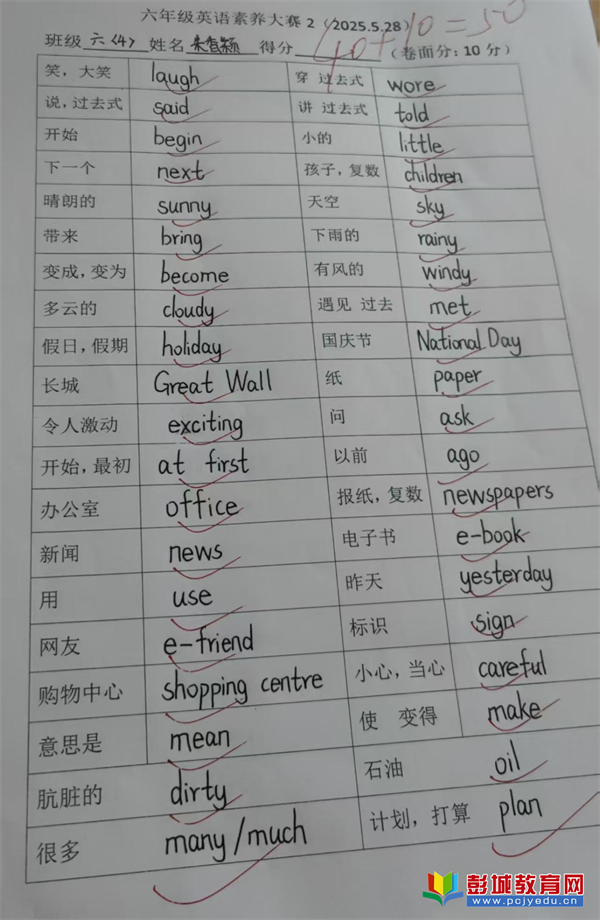 六年级英语素养大赛 2 (2025.5.28)
班级 六(4) 姓名 得分 40+10=50 (卷面分:10 分)
笑,大笑 laugh 穿 过去式 wore
说,过去式 said 讲 过去式 told
开始 begin 小的 little
下一个 next 孩子,复数 children
晴朗的 sunny 天空 sky
带来 bring 下雨的 rainy
变成,变为 become 有风的 windy
多云的 cloudy 遇见 过去 met
假日,假期 holiday 国庆节 National Day
长城 Great Wall 纸 paper
令人激动 exciting 问 ask
开始,最初 at first 以前 ago
办公室 office 报纸,复数 newspapers
新闻 news 电子书 e-book
用 use 昨天 yesterday
网友 e-friend 标识 sign
购物中心 shopping centre 小心,当心 careful
意思是 mean 使 变得 make
肮脏的 dirty 石油 oil
很多 many/much 计划,打算 plan
彭城教育网
www.pcjyedu.cn